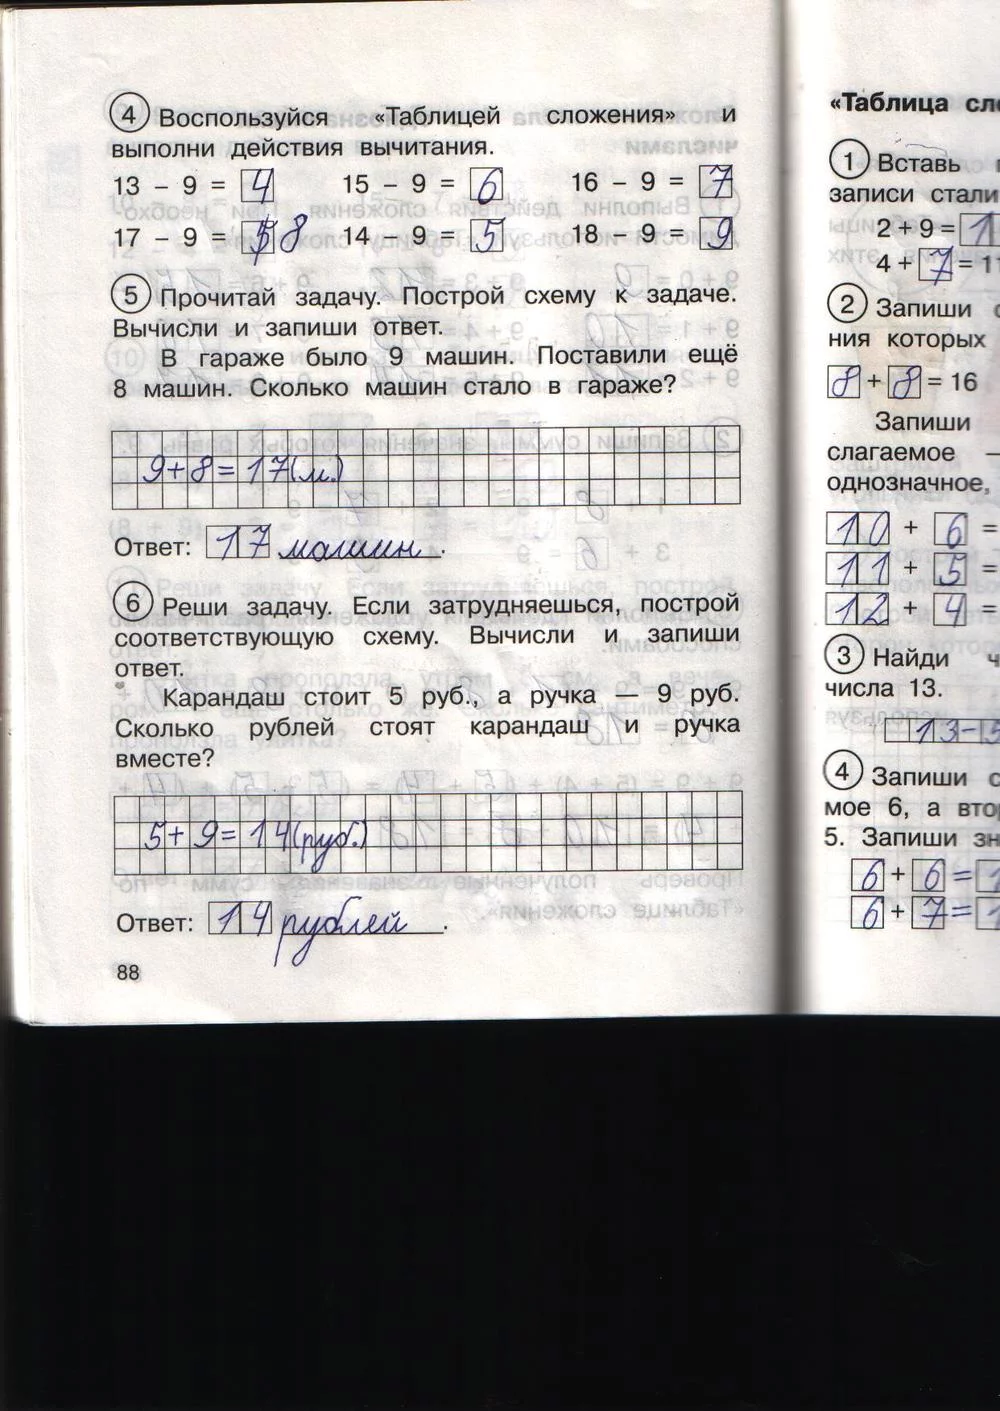 4 Воспользуйся «Таблицей сложения» и
выполни действия вычитания.
13 – 9 = 4 15 – 9 = 6 16 – 9 = 7
17 – 9 = 8 14 – 9 = 5 18 – 9 = 9
5 Прочитай задачу. Построй схему к задаче.
Вычисли и запиши ответ.
В гараже было 9 машин. Поставили ещё
8 машин. Сколько машин стало в гараже?
9+8=17(м.)
Ответ: 17 машин.
6 Реши задачу. Если затрудняешься, построй
соответствующую схему. Вычисли и запиши
ответ.
Карандаш стоит 5 руб., а ручка — 9 руб.
Сколько рублей стоят карандаш и ручка
вместе?
5+9=14(руб.)
Ответ: 14 рублей.
88
«Таблица
1 Вставь
записи стали
2 + 9 = 1
4 + 7 = 11
2 Запиши
ния которых
8 + 8 = 16
Запиши
слагаемое —
однозначное,
10 + 6 =
11 + 5 =
12 + 4 =
3 Найди
числа 13.
13–5
4 Запиши
мое 6, а
5. Запиши
6 + 6 = 1
6 + 7 = 1